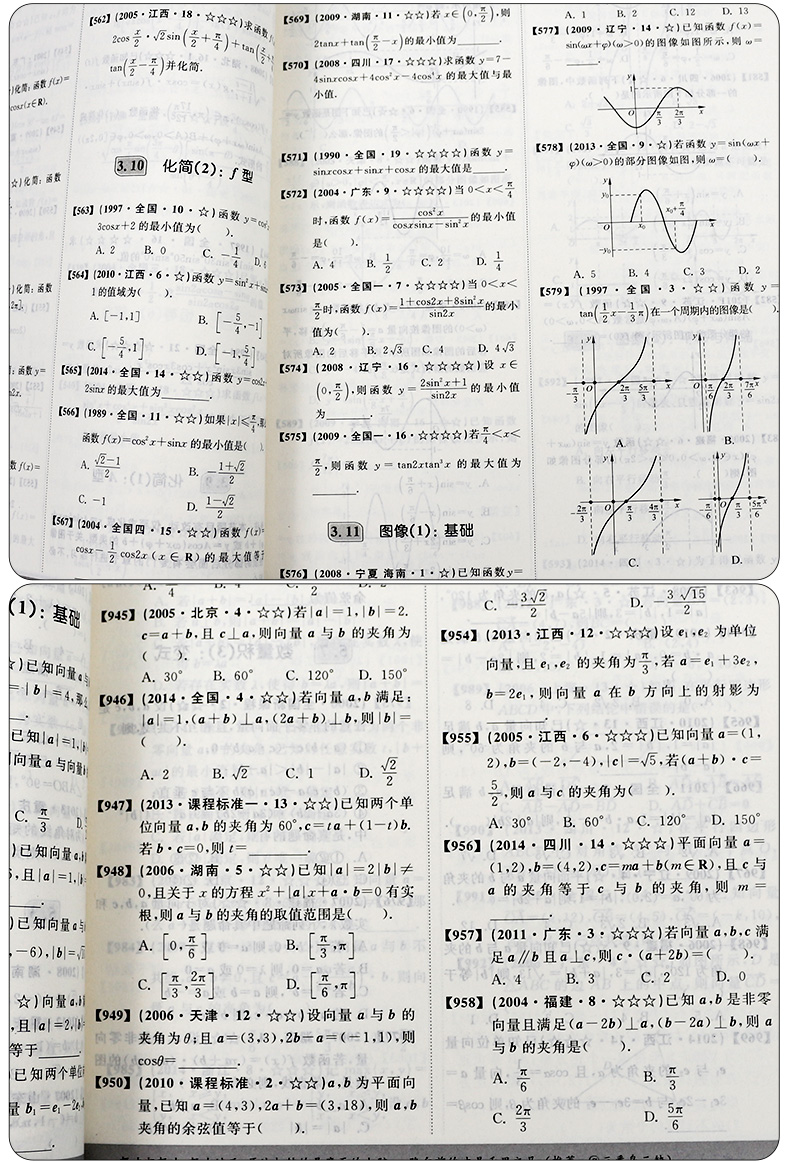 【562】(2005·江西·18·☆☆☆☆)求函数
2cos x/2·√2sin(x/2+π/4)+tan(x/2+
tan(x/2-π/4)并化简.
)化简:函数 f(x)=
cosx(x∈R).
3.10 化简(2): f 型
【563】(1997·全国·10·☆)函数 y=cos²
3cosx+2 的最小值为( ).
A. 2 B. 0 C. -1/4 D. 6
【564】(2010·江西·6·☆)函数 y=sin²x+sin
1的值域为( ).
A. [-1,1] B. [-5/4,-1]
C. [-5/4,1] D. [-1,5/4]
【565】(2014·全国·14·☆☆)函数 y=cos2x
2sinx 的最大值为
【566】(1989·全国·11·☆☆)如果|x|≤π/4,
函数 f(x)=cos²x+sinx 的最小值是(
A. (√2-1)/2 B. -(1+√2)/2
C. -1 D. (1-√2)/2
【567】(2004·全国四·15·☆☆)函数 f(x)=
cosx-1/2 cos2x(x∈R)的最大值等于
【569】(2009·湖南·11·☆☆)若 x∈(0,π/2),则
2tanx+tan(π/2-x)的最小值为______.
【570】(2008·四川·17·☆☆☆☆)求函数 y=7-
4sinxcosx+4cos²x-4cos⁴x 的最大值与最
小值.
【571】(1990·全国·19·☆☆☆☆)函数 y=
sinxcosx+sinx+cosx 的最大值是______.
【572】(2004·广东·9·☆☆☆☆)当 0<x<π/4
时,函数 f(x)=cos²x/(cosxsinx-sin²x)的最小值
是( ).
A. 4 B. 1/2 C. 2 D. 1/4
【573】(2005·全国一·7·☆☆☆☆)当 0<x<
π/2时,函数 f(x)=(1+cos2x+8sin²x)/sin2x的最小
值为( ).
A. 2 B. 2√3 C. 4 D. 4√3
【574】(2008·辽宁·16·☆☆☆☆)设 x∈
(0,π/2),则函数 y=(2sin²x+1)/sin2x 的最小值
为______.
【575】(2009·全国一·16·☆☆☆☆)若π/4<x<
π/2,则函数 y=tan2xtan³x 的最大值为
______.
3.11 图像(1): 基础
【576】(2008·宁夏 海南·1·☆)已知函数y=
A. 1 B. 2 C. 12 D. 13
【577】(2009·辽宁·14·☆)已知函数 f(x)=
sin(ωx+φ)(ω>0)的图像如图所示,则 ω=
______.
y 1 O π/3 2π/3 x
【578】(2013·全国·9·☆)若函数 y=sin(ωx+
φ)(ω>0)的部分图像如图,则 ω=( ).
y y₀ O x₀ x₀+π/4 x -y₀
A. 5 B. 4 C. 3 D. 2
【579】(1997·全国·3·☆☆)函数 y=
tan(1/2x-1/3π)在一个周期内的图像是( ).
-π/3 O 2π/3 5π/3 x -π/6 O 2π/3 7π/6 x
A. B.
-2π/3 O π/3 4π/3 x -π/6 O π/3 5π/6 x
C. D.
(1): 基础
【945】(2005·北京·4·☆☆)若|a|=1,|b|=2.
c=a+b,且 c⊥a,则向量 a 与 b 的夹角为
( ).
A. 30° B. 60° C. 120° D. 150°
【946】(2014·全国·4·☆☆)若向量 a,b 满足:
|a|=1,(a+b)⊥a,(2a+b)⊥b,则|b|=
( ).
A. 2 B. √2 C. 1 D. √2/2
【947】(2013·课程标准一·13·☆☆)已知两个单
位向量 a,b 的夹角为 60°,c=ta+(1-t)b.
若 b·c=0,则 t=______.
【948】(2006·湖南·5·☆☆)已知|a|=2|b|≠
0,且关于 x 的方程 x²+|a|x+a·b=0 有实
根,则 a 与 b 的夹角的取值范围是( ).
A. [0,π/6] B. [π/3,π]
C. [π/3,2π/3] D. [π/6,π]
【949】(2006·天津·12·☆☆)设向量 a 与 b 的
夹角为 θ;且 a=(3,3),2b=a=(-1,1),则
cosθ=______.
【950】(2010·课程标准·2·☆☆)a,b 为平面向
量,已知 a=(4,3),2a+b=(3,18),则 a,b
夹角的余弦值等于( ).
C. -3√2/2 D. -3√15/2
【954】(2013·江西·12·☆☆☆)设 e₁,e₂ 为单位
向量,且 e₁,e₂ 的夹角为π/3,若 a=e₁+3e₂,
b=2e₁,则向量 a 在 b 方向上的射影为
______.
【955】(2005·江西·6·☆☆☆)已知向量 a=(1,
2),b=(-2,-4),|c|=√5,若(a+b)·c=
5/2,则 a 与 c 的夹角为( ).
A. 30° B. 60° C. 120° D. 150°
【956】(2014·四川·14·☆☆☆)平面向量 a=
(1,2),b=(4,2),c=ma+b(m∈R),且 c 与
a 的夹角等于 c 与 b 的夹角,则 m=
______.
【957】(2011·广东·3·☆☆☆)若向量 a,b,c 满
足 a∥b 且 a⊥c,则 c·(a+2b)=( ).
A. 4 B. 3 C. 2 D. 0
【958】(2004·福建·8·☆☆☆☆)已知 a,b 是非零
向量且满足(a-2b)⊥a,(b-2a)⊥b,则 a
与 b 的夹角是( ).
A. π/6 B. π/3
C. 2π/3 D. 5π/6